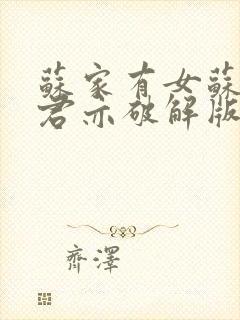 蘇家有女蘇
君亦破解版
齊澤